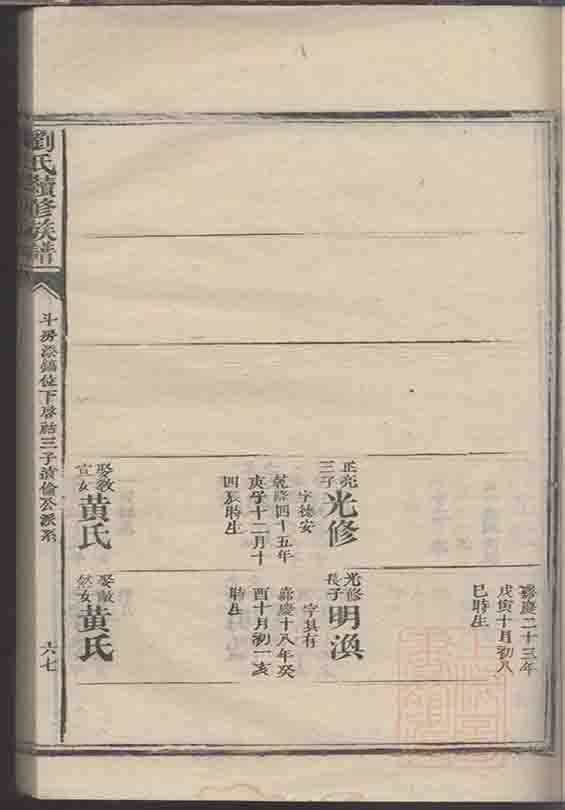 正亮
三子
光修
字德安
乾隆四十五年
庚子十二月十
四辰時生
娶教
宣女
黄氏
嘉慶二十三年
戊寅十月初八
巳時生
光修
長子
明渙
字具有
嘉慶十八年癸
酉十月初一亥
時生
娶
女
黄氏
劉氏續修族譜
斗房 位下啓 三子清倫公派系
六七